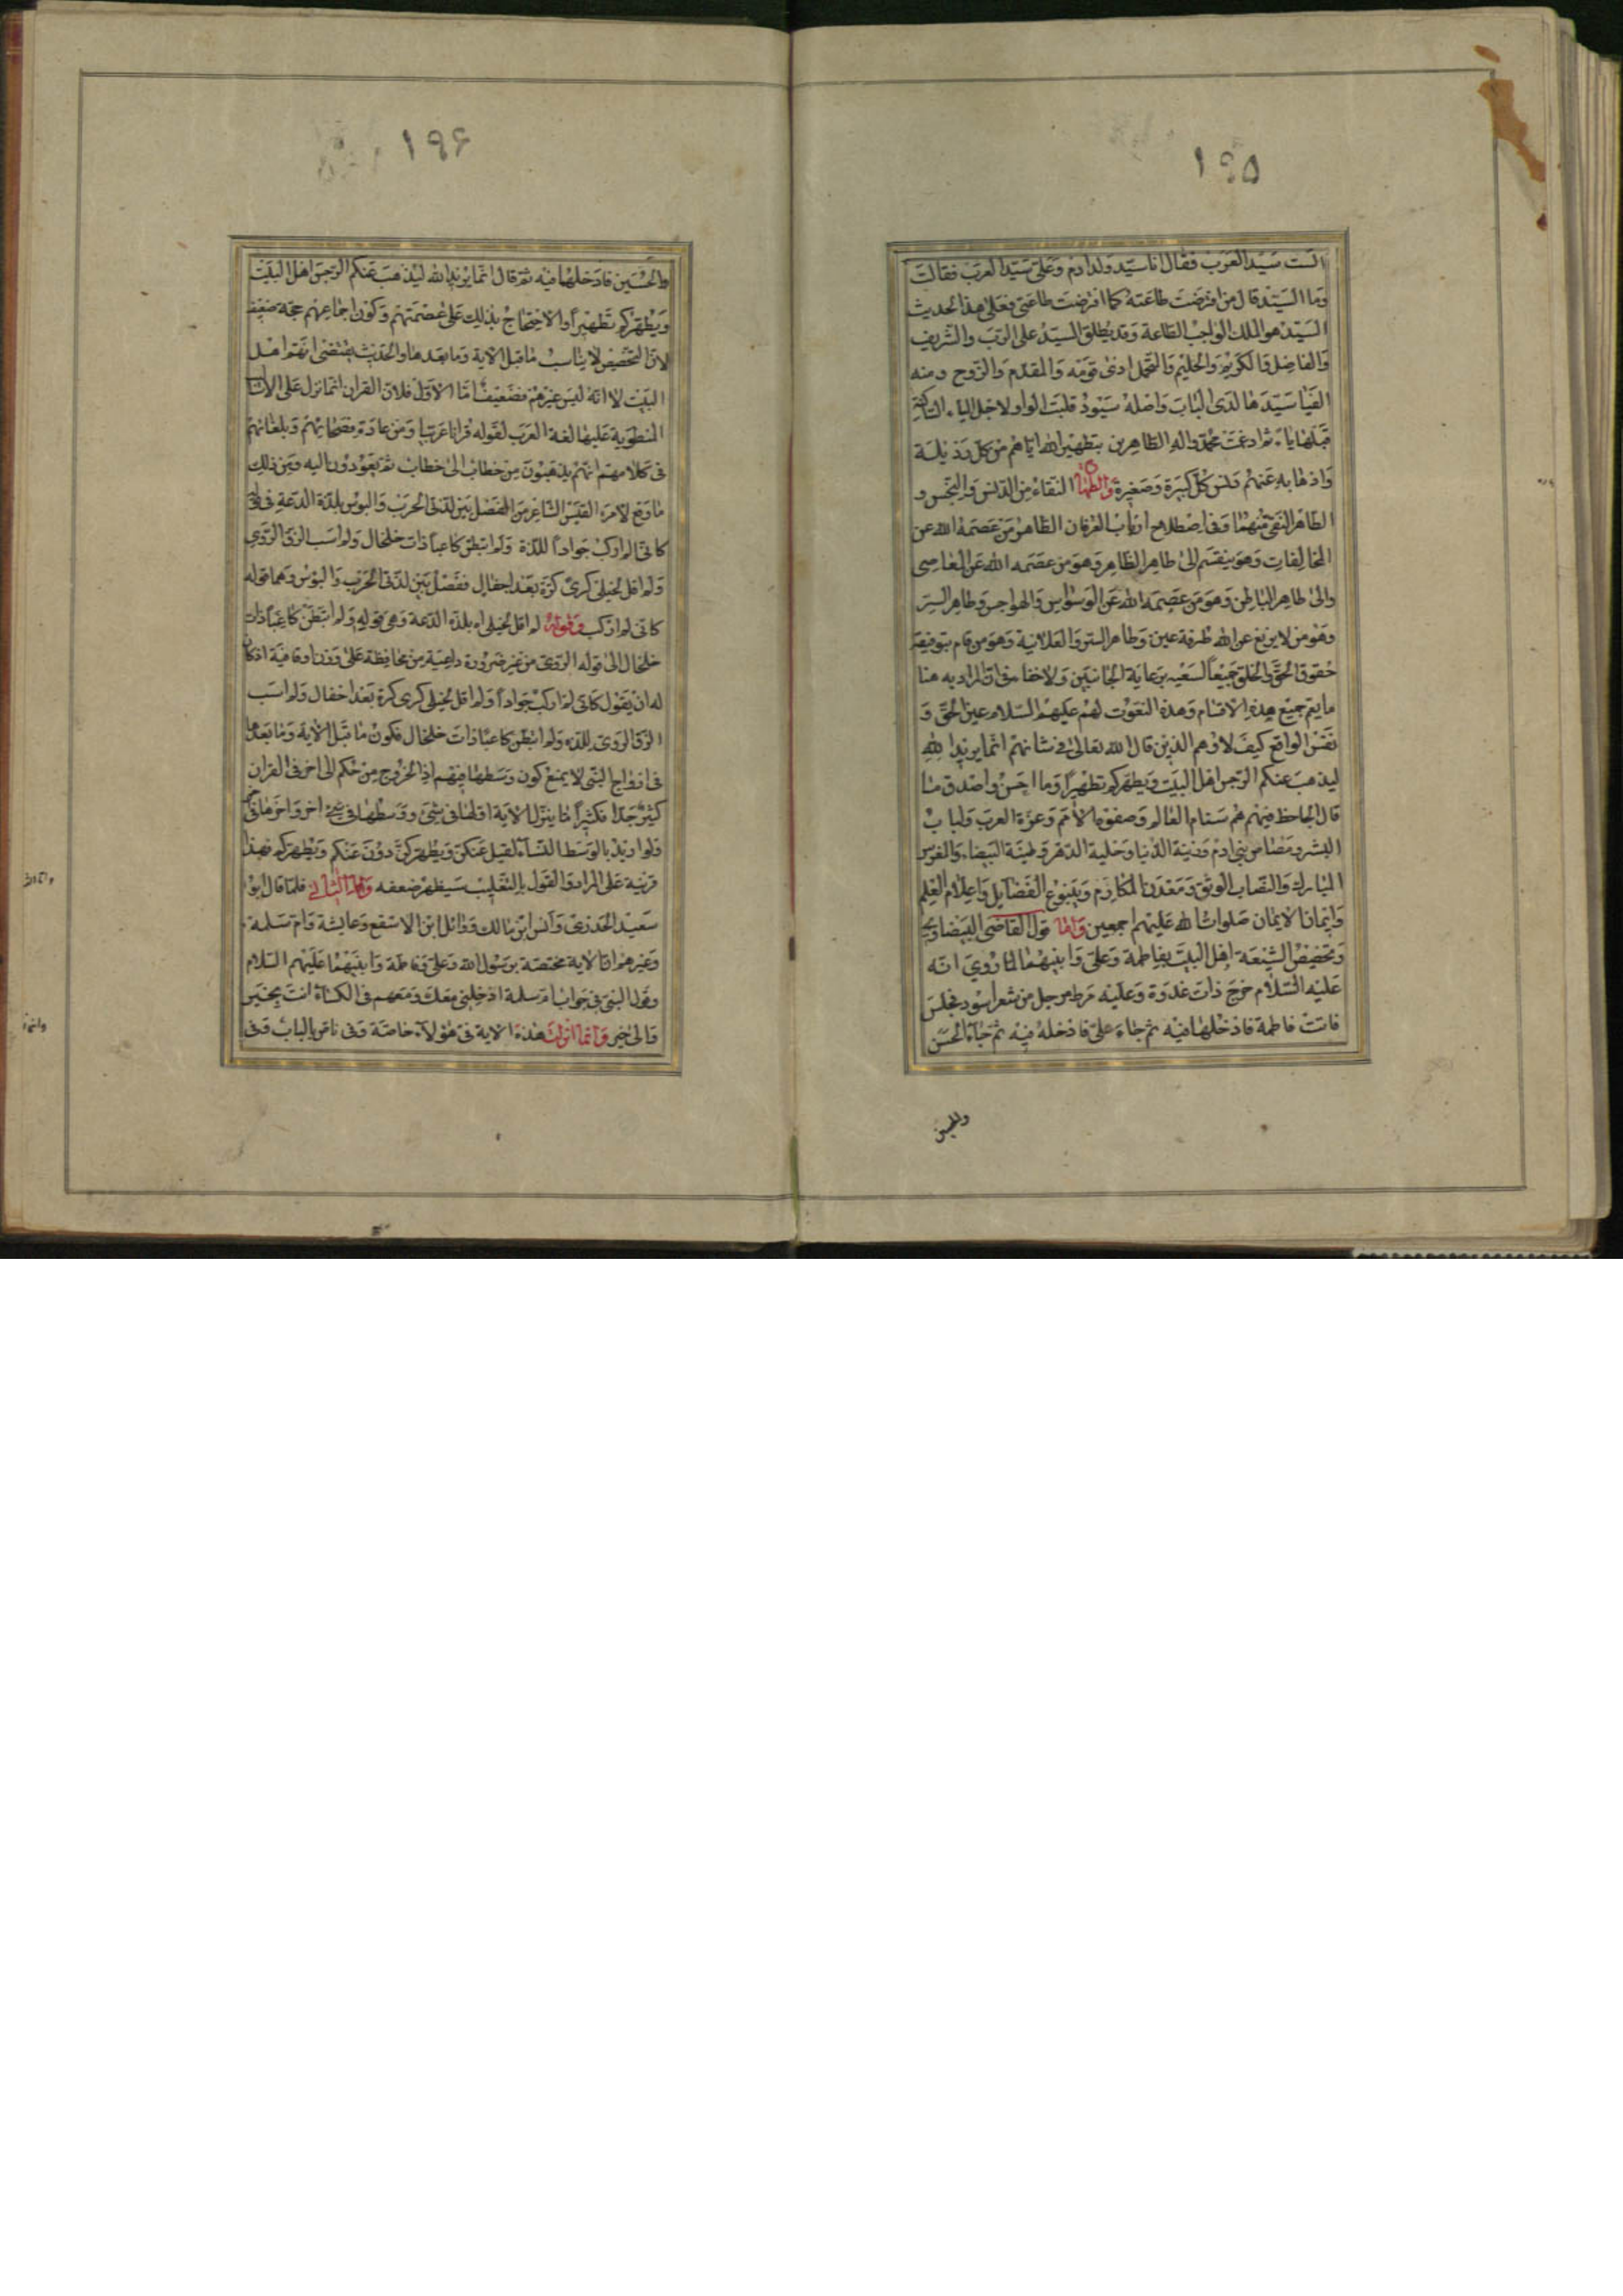 ١٩٥
الست سيد العرب فقال انا سيد ولد ادم وعلي سيد العرب فقالت
وما السيد قال من افترضت طاعته كما افترضت طاعتي فعلى هذا الحديث
السيد هو الملك الواجب الطاعة وقد يطلق السيد على الرب والشريف
والفاضل والكريم والحليم والمتحمل اذى قومه والمقدم والزوج ومنه
الفيا سيدها لدى الباب واصله سيود قلبت الواو لاجل الياء الساكنة
قبلها ياء ثم ادغمت محمد واله الطاهرين بتطهير الله اياهم من كل رذيلة
واذهابه عنهم دنس كل كبيرة وصغيرة والطهارة النقاء من الدنس والنجس و
الطاهر النقي منهما وفي اصطلاح ارباب العرفان الطاهر من عصمه الله عن
المخالفات وهو ينقسم الى طاهر الظاهر وهو من عصمه الله عن المعاصي
والى طاهر الباطن وهو من عصمه الله عن الوسواس والهواجس وطاهر السر
وهو من لا يزيغ عن الله طرفة عين وطاهر السر والعلانية وهو من قام بتوفية
حقوق الحق والخلق جميعا لسعيه برعاية الجانبين ولا خفاء في ان المراد به هنا
ما يعم جميع هذه الاقسام وهذه النعوت لهم عليهم السلام عين الحق و
نفس الواقع كيف لا وهم الذين قال الله تعالى في شانهم انما يريد الله
ليذهب عنكم الرجس اهل البيت ويطهركم تطهيرا وما احسن واصدق ما
قال الجاحظ فيهم هم سنام العالم وصفوة الامم وغرة العرب ولباب
البشر ومصاص بني ادم وزينة الدنيا وحلية الدهر وطينة البيضاء والغرس
المبارك والنصاب الوثيق ومعدن المكارم وينبوع الفضايل واعلام العلم
وايمان الايمان صلوات الله عليهم اجمعين واما قول القاضي البيضاوي
وتخصيص الشيعة اهل البيت بفاطمة وعلي وابنيهما لما روي انه
عليه السلام خرج ذات غدوة وعليه مرط مرجل من شعر اسود فجلس
فاتت فاطمة فادخلها فيه ثم جاء علي فادخله فيه ثم جاء الحسن
والحسين
١٩۶
والحسين فادخلهما فيه ثم قال انما يريد الله ليذهب عنكم الرجس اهل البيت
ويطهركم تطهيرا والاحتجاج بذلك على عصمتهم وكون اجماعهم حجة ضعيف
لان التخصيص لا يناسب ما قبل الاية وما بعدها والحديث يقتضي انهم اهل
البيت لا انه ليس غيرهم فضعيف اما الاول فلان القران انما نزل على
المنطوية عليها لغة العرب لقوله قرانا عربيا ومن عادة فصحائهم وبلغائهم
في كلامهم انهم يذهبون من خطاب الى خطاب ثم يعودون اليه ومن ذلك
ما وقع لامرء القيس الشاعر من الفصل بين لذتي الحرب والبوس بلذة الدعة في
كاني لم اركب جوادا للذة ولم اتبطن كاعبا ذات خلخال ولم اسب الزق الروي
ولم اقل لخيلي كري كرة بعد اجفال ففصل بين لذتي الحرب والبوس وهما قوله
كاني لم اركب وقوله لم اقل لخيلي اه بلذة الدعة وهي قوله ولم اتبطن كاعبا ذات
خلخال الى قوله الروي من غير ضرورة داعية من محافظة على وزن او قافية اذ كان
له ان يقول كاني لم اركب جوادا ولم اقل لخيلي كري كرة بعد اجفال ولم اسب
الزق الروي للذة ولم اتبطن كاعبا ذات خلخال فكون ما قبل الاية وما بعدها
في ازواج النبي لا يمنع كون وسطها فيهم اذ الخروج من حكم الى اخر في القران
كثير جدا فكثيرا ما ينزل الاية اولها في شيء ووسطها في شيء اخر واخرها في
ولو اريد بالوسط النساء لقيل عنكن ويطهركن دون عنكم ويطهركم فهذا
قرينة على المراد والقول بالتغليب سيظهر ضعفه واما الثاني فلما قال ابو
سعيد الخدري وانس ابن مالك ووائل ابن الاسقع وعايشة وام سلمة
وغيرهم ان الاية مختصة برسول الله وعلي وفاطمة وابنيهما عليهم السلام
وقول النبي في جواب ام سلمة ادخلني معك ومعهم في الكساء انت بخير
والى خير وانما انزلت هذه الاية في هؤلاء خاصة وفي ناس بالباب وفي